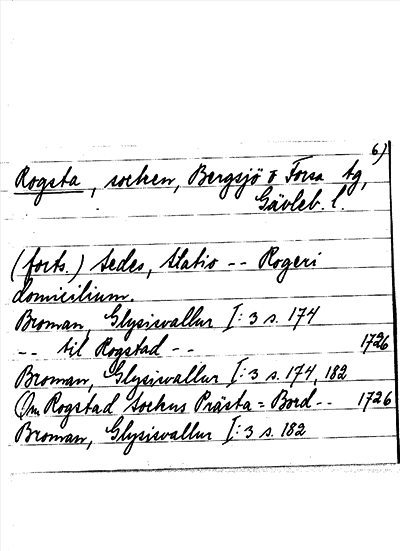 6)
Rogsta, socken, Bergsjö o Forsa tg,
Gävleb. l.
(forts.) sedes, statio -- Rogeri
domicilium.
Broman, Glysisvallur I:3 s. 174
-- til Rogstad -- 1726
Broman, Glysisvallur I:3 s. 174, 182
(Om Rogstad Sockns Prästa = Bord -- 1726
Broman, Glysisvallur I:3 s. 182